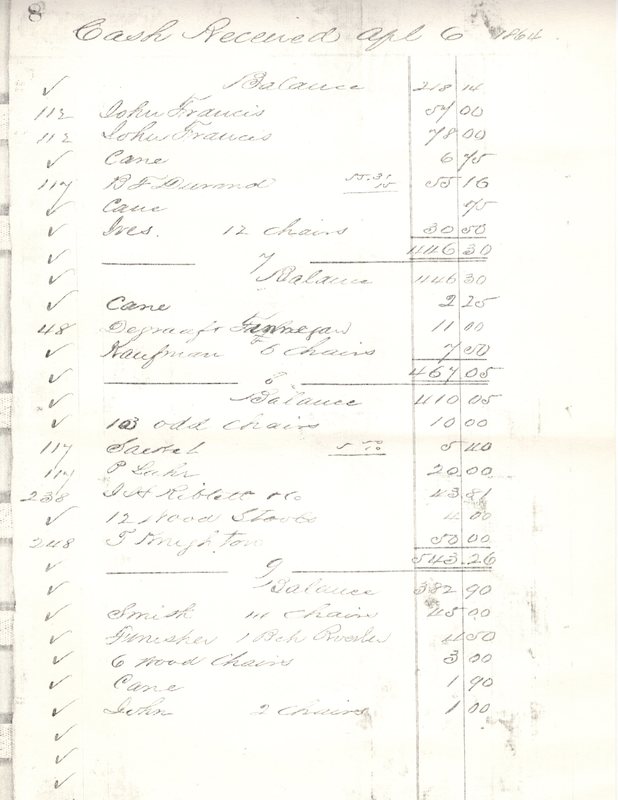 8
Cash Received Apl 6 1864.
✓ Balance 218 14
112 John Francis 57 00
112 John Francis 78 00
✓ Cane 6 75
117 B F Durand 55.31 15 55 16
✓ Cane 75
✓ Ives. 12 Chairs 30 50
✓ 446 30
7
✓ Balance 446 30
✓ Cane 2 25
48 Degraaf Finnegan 11 00
✓ Kaufman 6 Chairs 7 50
✓ 467 05
8
✓ Balance 410 05
✓ 10 odd Chairs 10 00
117 5 50 10 5 40
117 P Lahr 20 00
238 J H Riblett & Co 43 81
✓ 12 Wood Stools 4 00
248 T Knighton 50 00
✓ 543.26
9
✓ Balance 382 90
✓ Smith Chairs 45 00
✓ Finisher 1 Rocker 4 50
✓ 6 Wood Chairs 3 00
✓ Cane 1 90
✓ John 2 Chairs 1 00
✓
✓
✓